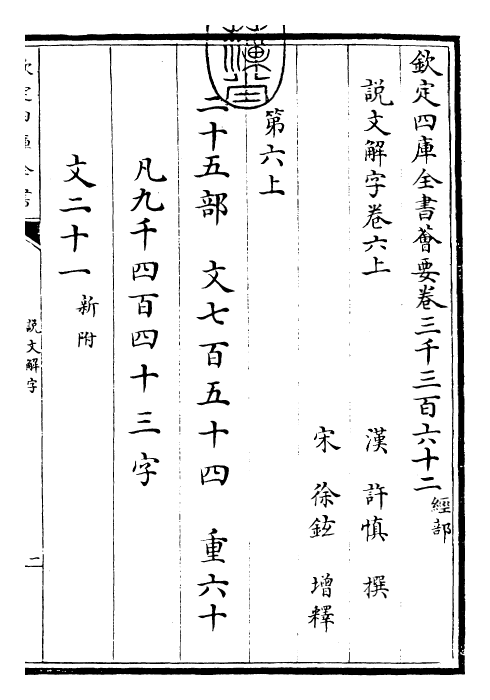 欽定四庫全書薈要卷三千三百六十二 經部
說文解字卷六上
漢 許慎 撰
宋 徐鉉 增釋
第六上
二十五部 文七百五十四 重六十
凡九千四百四十三字
文二十一 新附
說文解字